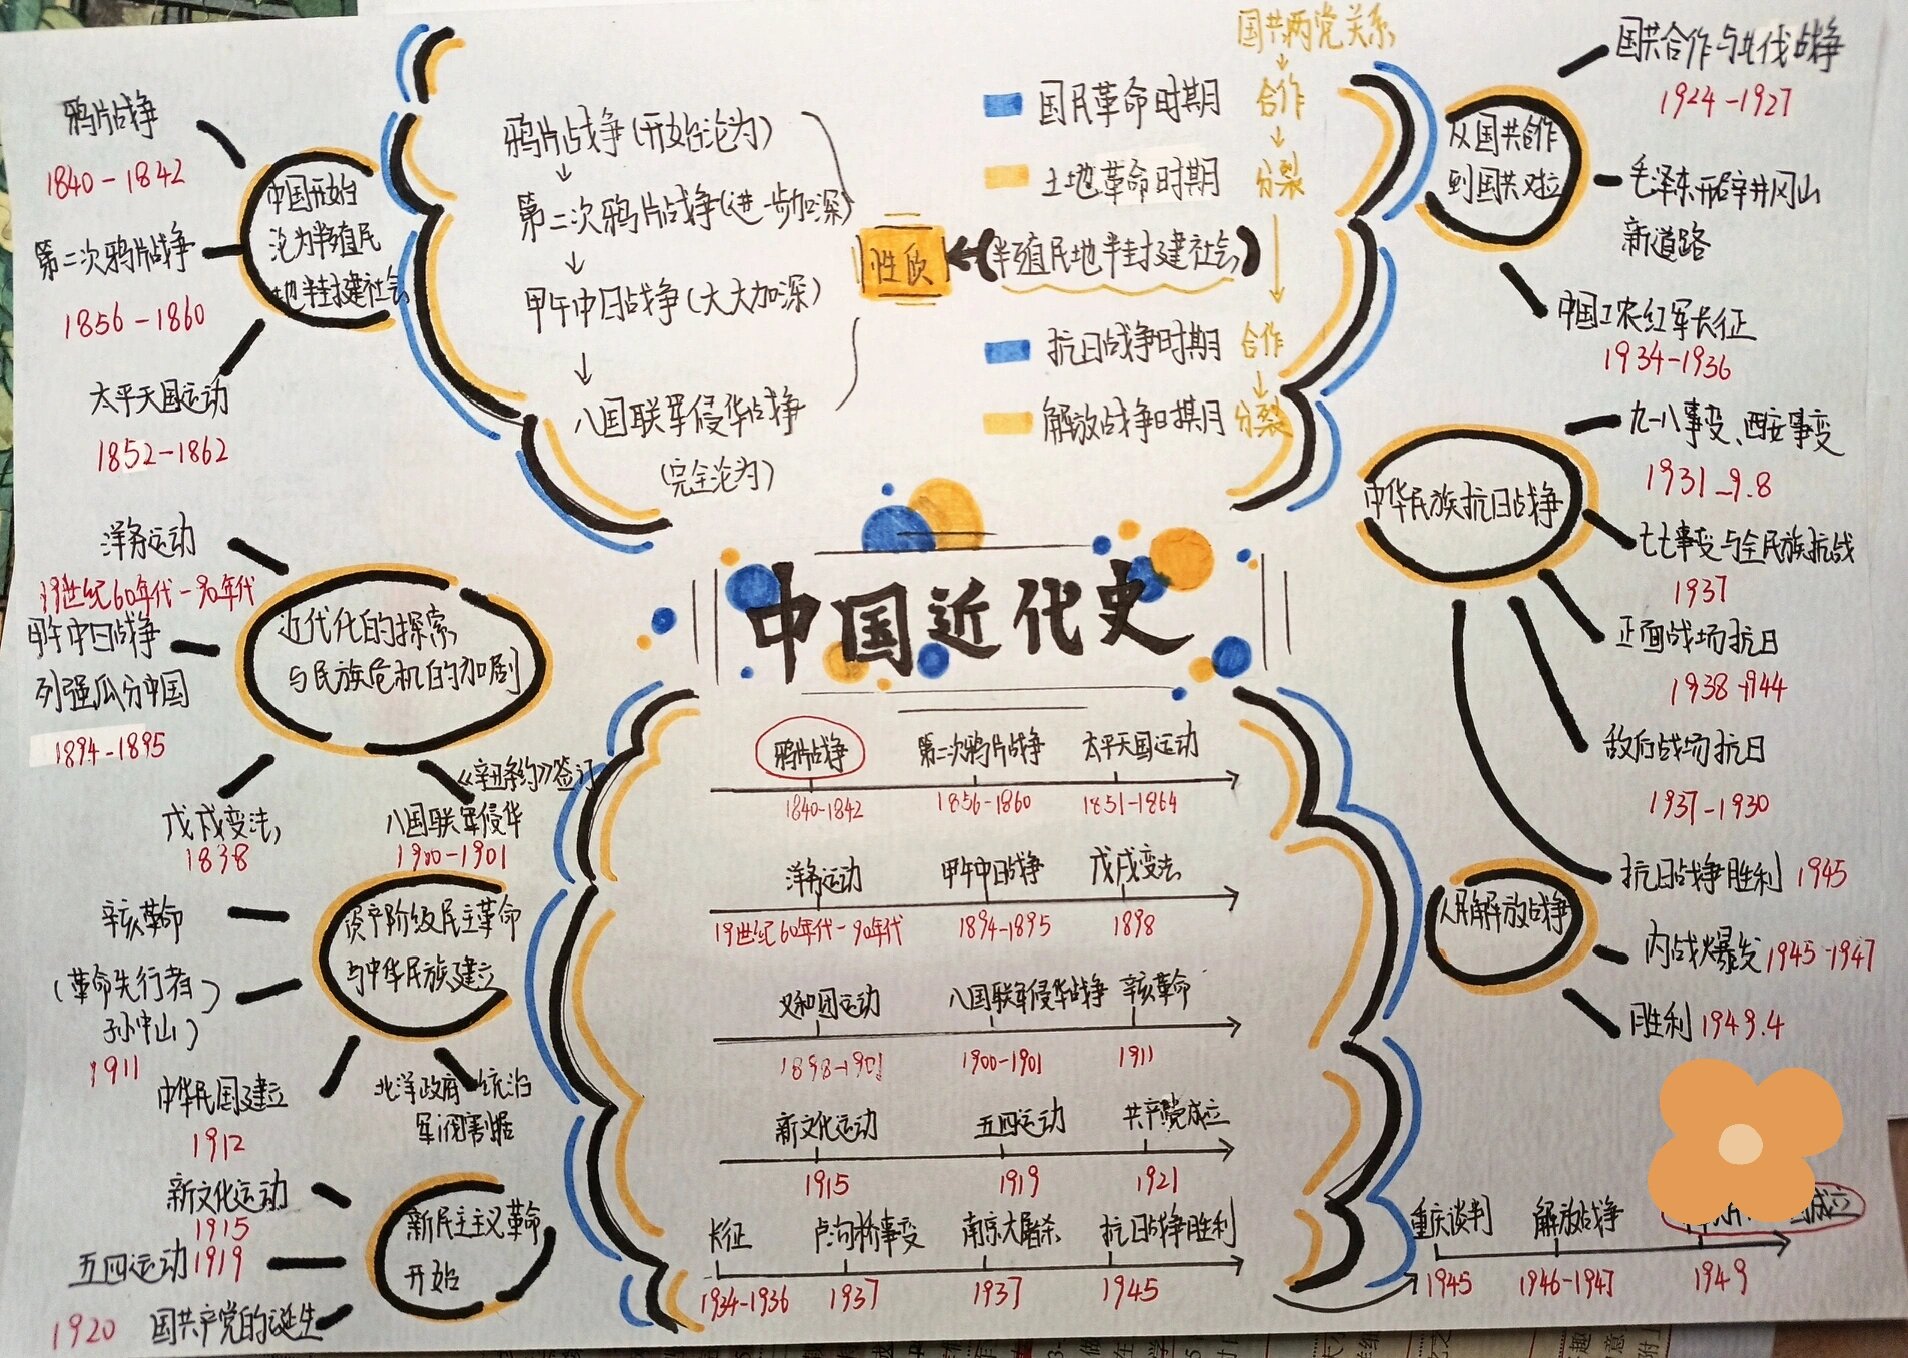 鸦片战争
1840-1842
第二次鸦片战争
1856-1860
太平天国运动
1852-1862
中国开始
沦为半殖民
地半封建社会
鸦片战争(开始沦为)
↓
第二次鸦片战争(进一步加深)
↓
甲午中日战争(大大加深)
↓
八国联军侵华战争
(完全沦为)
(半殖民地半封建社会)
国共两党关系
↓
国民革命时期 合作
↓
土地革命时期 分裂
↓
抗日战争时期 合作
↓
解放战争时期 分裂
从国共合作
到国共对立
国共合作与北伐战争
1924-1927
毛泽东开辟井冈山
新道路
中国工农红军长征
1934-1936
中华民族抗日战争
九一八事变、西安事变
1931-9.8
七七事变与全民族抗战
1937
正面战场抗日
1938-1944
敌后战场抗日
1937-1930
抗日战争胜利 1945
人民解放战争
内战爆发 1945-1947
胜利 1949.4
洋务运动
19世纪60年代-90年代
甲午中日战争
列强瓜分中国
1894-1895
近代化的探索
与民族危机的加剧
戊戌变法
1838
《辛丑条约》签订
八国联军侵华
1900-1901
辛亥革命
(革命先行者
孙中山)
1911
资产阶级民主革命
与中华民族建立
中华民国建立
1912
北洋政府统治
军阀割据
新文化运动
1915
五四运动 1919
1920 国共产党的诞生
新民主主义革命
开始
中国近代史
鸦片战争 第二次鸦片战争 太平天国运动
1840-1842 1856-1860 1851-1864
洋务运动 甲午中日战争 戊戌变法
19世纪60年代-90年代 1894-1895 1898
义和团运动 八国联军侵华战争 辛亥革命
1898-1901 1900-1901 1911
新文化运动 五四运动 共产党成立
1915 1919 1921
长征 卢沟桥事变 南京大屠杀 抗日战争胜利
1934-1936 1937 1937 1945
重庆谈判 解放战争 成立
1945 1946-1947 1949